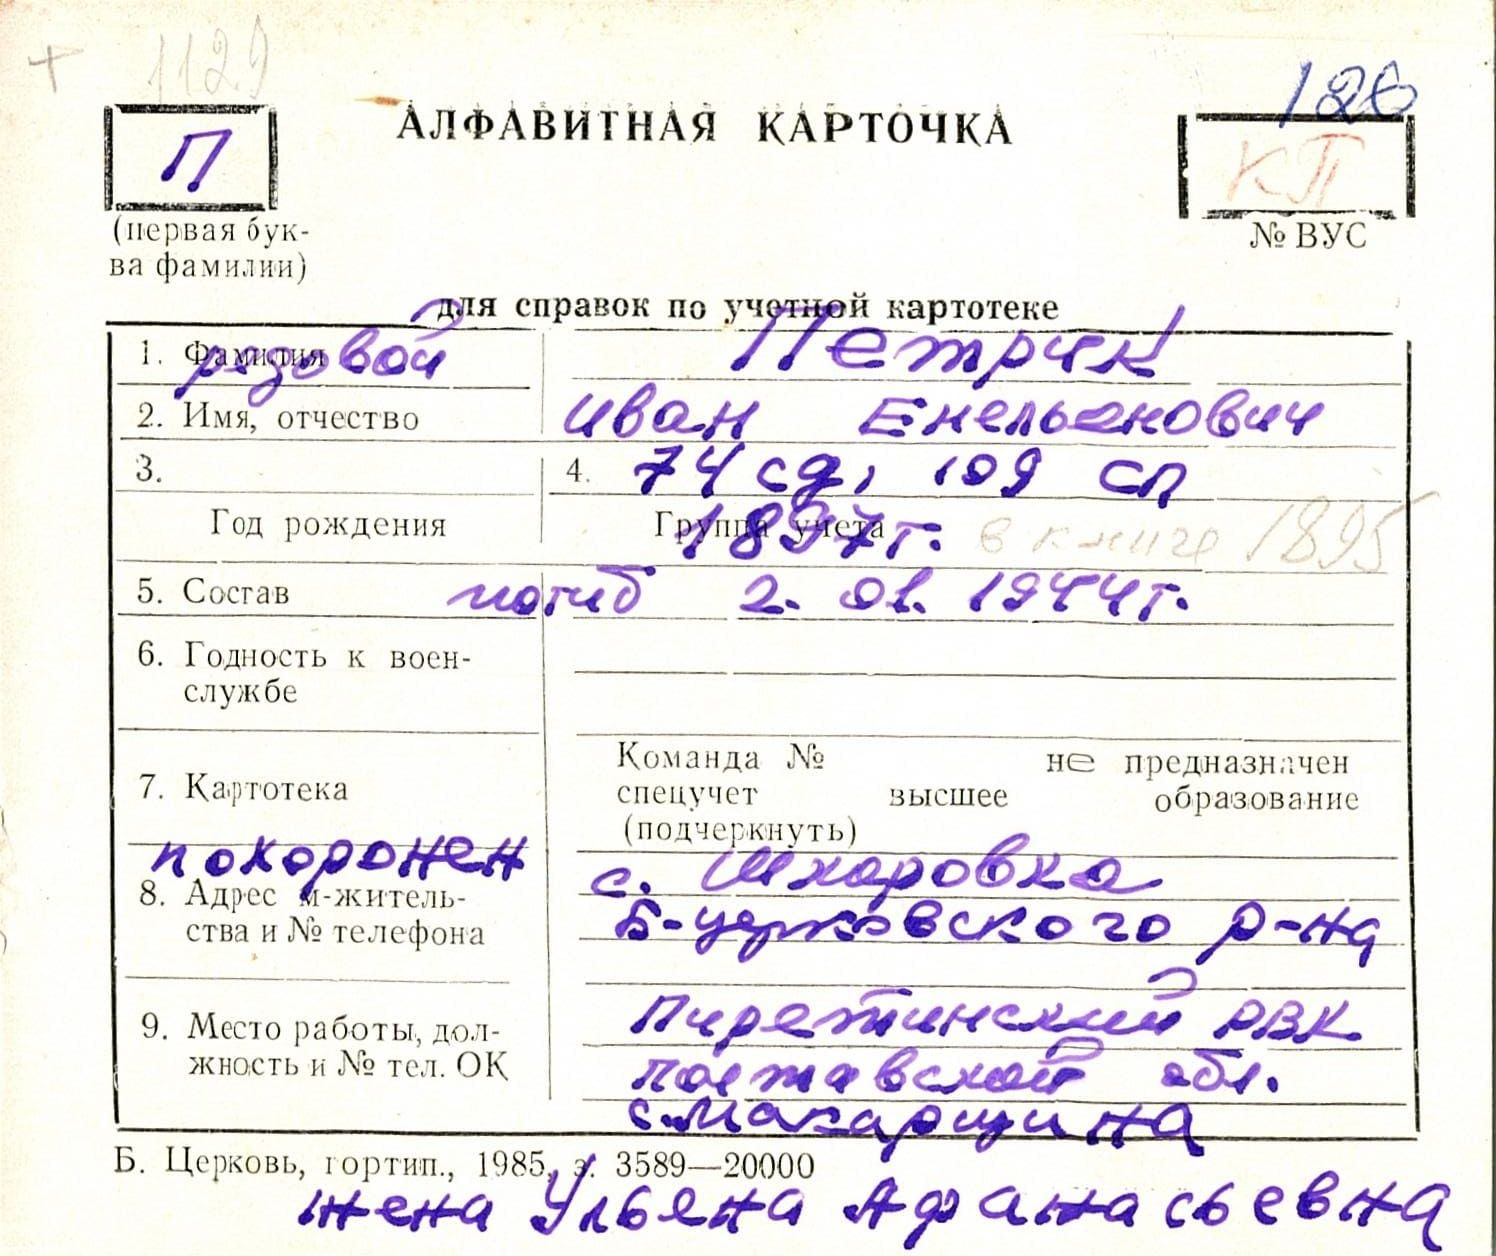 + 1129
126
П
АЛФАВИТНАЯ КАРТОЧКА
КП
(первая бук-
ва фамилии)
№ ВУС
для справок по учетной картотеке
1. Фамилия рядовой Петрик
2. Имя, отчество Иван Емельянович
3. 4. 74 сд, 109 сп
Год рождения Группа учета
1897г. в книге 1895
5. Состав погиб 2.01.1944г.
6. Годность к воен-
службе
Команда № не предназначен
7. Картотека спецучет высшее образование
(подчеркнуть)
похоронен с. Шкаровка
8. Адрес м-житель-
ства и № телефона Б-церковского р-на
Пирятинский РВК
9. Место работы, дол-
жность и № тел. ОК Полтавской обл.
с. Макарщина
Б. Церковь, гортип., 1985, з. 3589—20000
жена Ульяна Афанасьевна